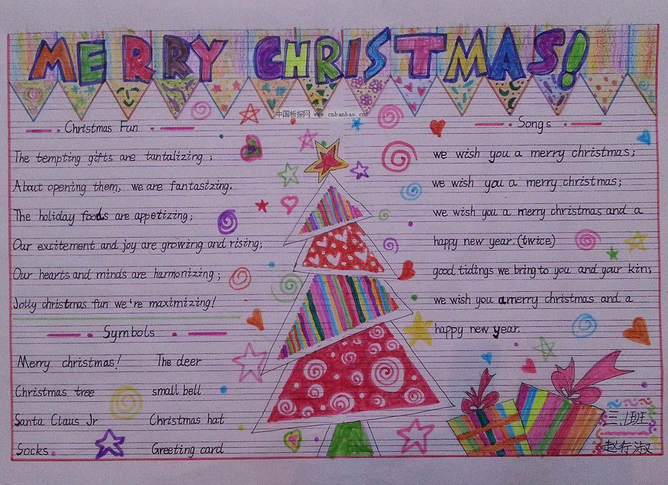 MERRY CHRISTMAS!
中国板报网 www.cnbanbao.com
Christmas Fun
The tempting gifts are tantalizing ;
About opening them, we are fantasizing.
The holiday foods are appetizing;
Our excitement and joy are growing and rising;
Our hearts and minds are harmonizing ;
Jolly christmas fun we're maximizing!
Symbols
Merry christmas! The deer
Christmas tree small bell
Santa Claus Jr Christmas hat
Socks Greeting card
Songs
we wish you a merry christmas;
we wish you a merry christmas;
we wish you a merry christmas and a
happy new year.(twice)
good tidings we bring to you and your kin;
we wish you a merry christmas and a
happy new year.
三.1班